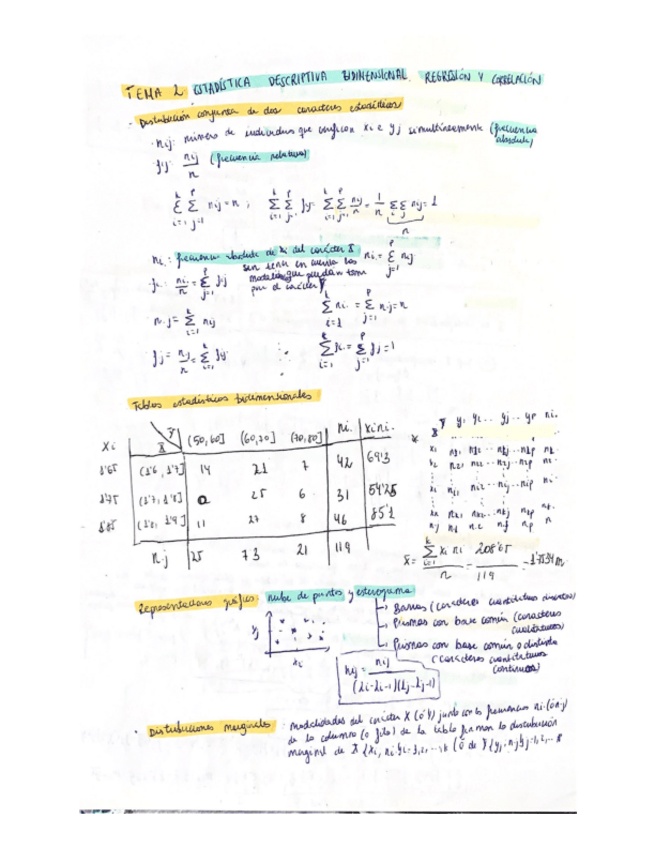 TEMA 2 ESTADÍSTICA DESCRIPTIVA BIDIMENSIONAL. REGRESIÓN Y CORRELACIÓN
- Distribución conjunta de dos caracteres estadísticos
· nij: número de individuos que verifican xi e yj simultáneamente (frecuencia absoluta)
fij: nij/n (frecuencia relativa)
k Σ i=1 p Σ j=1 nij = n ; k Σ i=1 p Σ j=1 fij = ΣΣ nij/n = 1/n ΣΣ nij = 1
n
ni.: frecuencia absoluta de xi del carácter X ni. = p Σ j=1 nij
sin tener en cuenta las
modalidades que puedan tom
por el carácter Y
fi. = ni./n = p Σ j=1 fij
k Σ i=1 ni. = p Σ j=1 n.j = n
n.j = k Σ i=1 nij
f.j = n.j/n = k Σ i=1 fij
k Σ i=1 fi. = p Σ j=1 f.j = 1
Tablas estadísticas bidimensionales
Xi X Y (50,60] (60,70] (70,80] ni. xini.
1'65 (1'6, 1'7] 14 21 7 42 69'3
1'75 (1'7, 1'8] 0 25 6 31 54'25
1'85 (1'8, 1'9] 11 27 8 46 85'1
n.j 25 73 21 119
X Y y1 y2 ... yj ... yp ni.
x̄ = k Σ i=1 xi ni / n = 208'65 / 119 = 1'7534 m
Representaciones gráficas: nube de puntos y esterograma
yj
xi
Barras (caracteres cuantitativos discretos)
Prismas con base común (caracteres cualitativos)
Prismas con base común o distinta
(caracteres cuantitativos continuos)
hij = nij / (Li-Li-1)(Lj-Lj-1)
· Distribuciones marginales: modalidades del carácter X (ó Y) junto con las frecuencias ni. (ó n.j)
de la columna (o fila) de la tabla forman la distribución
marginal de X {xi, ni.} i=1,2,...,k (ó de Y {yj, n.j} j=1,2,...